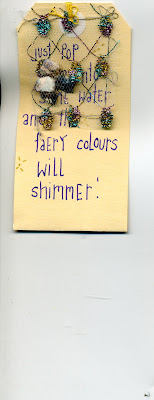 just Pop
into
water
and the
faery colours
will
shimmer!